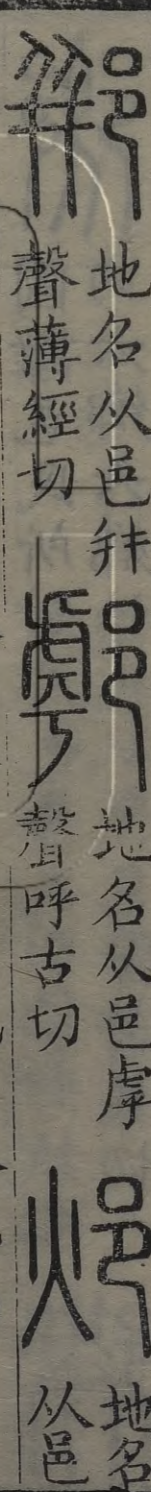 郱
地名从邑幷
聲薄經切
𨞙
地名从邑虖
聲呼古切
邩
地名
从邑